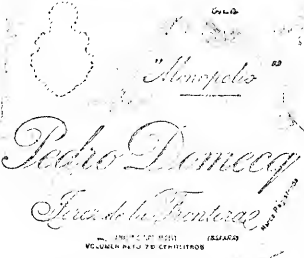 "Monopolio"
Pedro Domecq
Jerez de la Frontera
Marca Registrada
(ESPAÑA)
VOLUMEN NETO 70 CENTILITROS